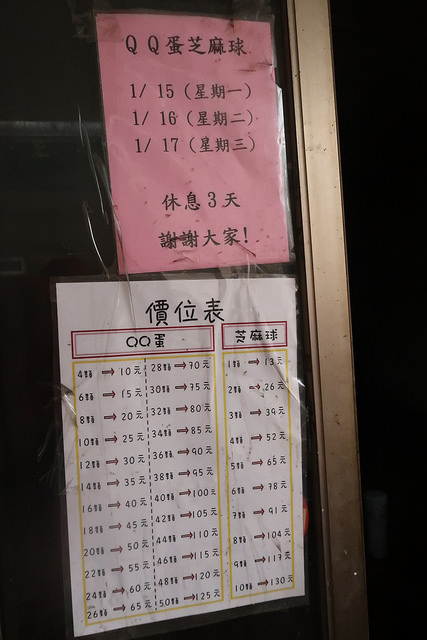 QQ蛋芝麻球
1/ 15 (星期一)
1/ 16 (星期二)
1/ 17 (星期三)
休息3天
謝謝大家!
價位表
QQ蛋
4顆 → 10元
6顆 → 15元
8顆 → 20元
10顆 → 25元
12顆 → 30元
14顆 → 35元
16顆 → 40元
18顆 → 45元
20顆 → 50元
22顆 → 55元
24顆 → 60元
26顆 → 65元
28顆 → 70元
30顆 → 75元
32顆 → 80元
34顆 → 85元
36顆 → 90元
38顆 → 95元
40顆 → 100元
42顆 → 105元
44顆 → 110元
46顆 → 115元
48顆 → 120元
50顆 → 125元
芝麻球
1顆 → 13元
2顆 → 26元
3顆 → 39元
4顆 → 52元
5顆 → 65元
6顆 → 78元
7顆 → 91元
8顆 → 104元
9顆 → 117元
10顆 → 130元